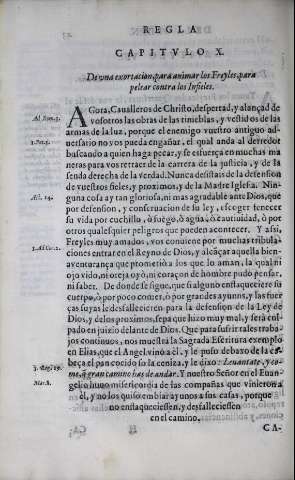 REGLA
CAPITVLO X.
De vna exortacion, para animar los Freyles, para
pelear contra los Infieles.
AGora, Caualleros de Christo, despertad, y alançad de
vosotros las obras de las tinieblas, y vestios de las
armas de la luz, porque el enemigo vuestro antiguo ad-
uersario no vos pueda engañar, el qual anda al derredor
buscando a quien haga pecar, y se esfuerça en muchas ma
neras para vos retraer de la carrera de la justicia, y de la
senda derecha de la verdad. Nunca desistais de la defension
de vuestros fieles, y proximos, y de la Madre Iglesia. Nin-
guna cosa ay tan gloriosa, ni mas agradable ante Dios, que
por defension, y conseruacion de su ley, escoger fenecer
su vida por cuchillo, ò fuego, ò agua, ò cautiuidad, ò por
otros qualesquier peligros que pueden acontecer. Y assi,
Freyles muy amados, vos conuiene por muchas tribula-
ciones entrar en el Reyno de Dios, y alcãçar aquella bien-
auenturança que prometiò a los que lo aman, la qual ni
ojo vido, ni oreja oyò, ni coraçon de hombre pudo pensar,
ni saber. De donde se sigue, que si alguno enflaqueciere su
cuerpo, ò por poco comer, ò por grandes ayunos, y las fuer
ças suyas le desfallecieren para la defension de la Ley de
Dios, y de los proximos, sepa que hizo muy mal, y serà cul-
pado en juizio delante de Dios. Que para sufrir tales traba-
jos continuos, nos muestra la Sagrada Escritura exemplo
en Elias, que el Angel vino à èl, y le puso debaxo de la ca-
beça el pan cocido so la ceniza, y le dixo: Leuantate, y co-
me, q̃ gran camino has de andar. Y nuestro Señor en el Euan-
gelio huuo misericordia de las compañas que vinieron a
èl, y no los quiso embiar ayunos a sus casas, porque
no enflaqueciessen, y desfalleciessen
en el camino.
CA-
Ad Rom.
Act. 14.
3. Reg. 19.
Mar. 8.